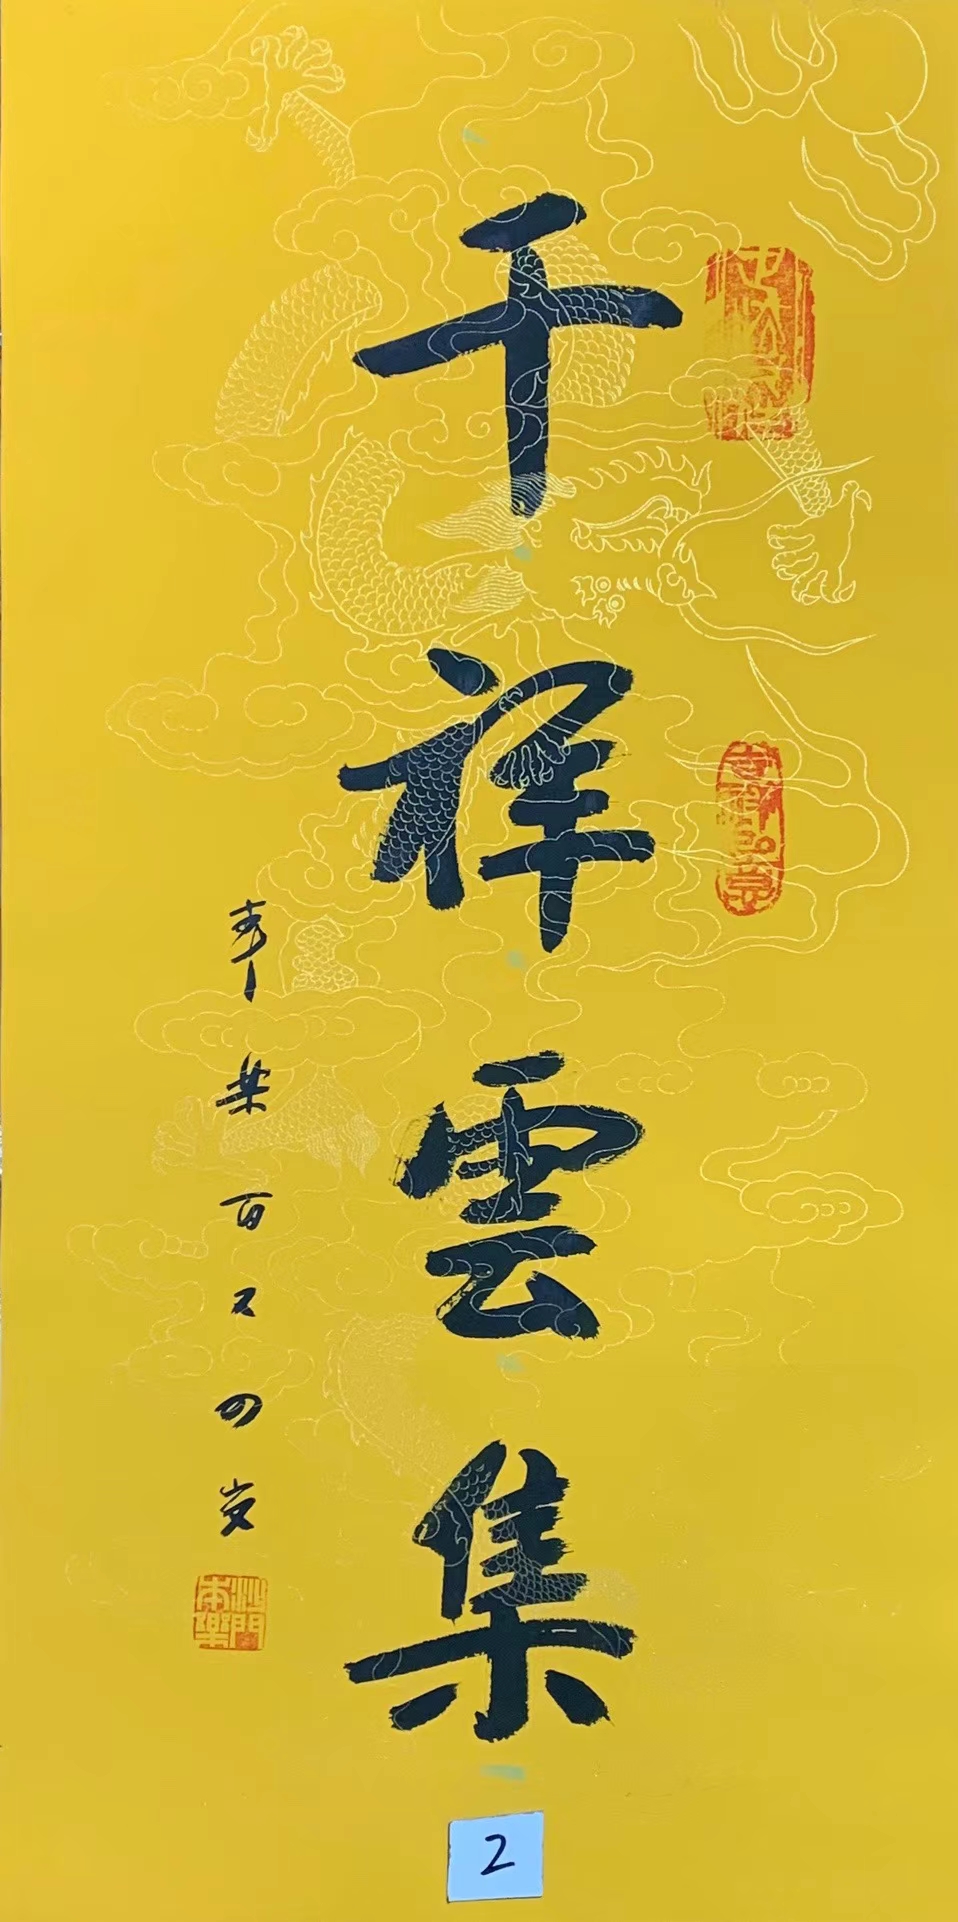 千祥雲集
本樂百又四岁
沙門
本樂
2